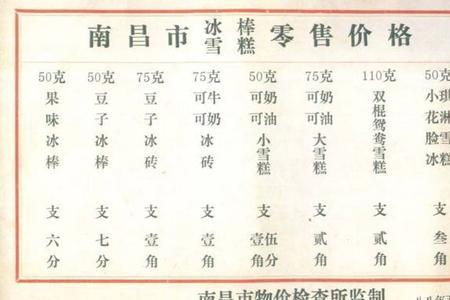 南昌市冰棒雪糕零售价格
50克果味冰棒支六分
50克豆子冰棒支七分
75克豆子冰砖支壹角
75克可可牛奶冰砖支壹角
50克可可奶油小雪糕支壹角伍分
75克可可奶油大雪糕支贰角
110克双棍鸳鸯雪糕支贰角
50克小花脸冰琪淋雪糕支叁角
南昌市物价检查所监制